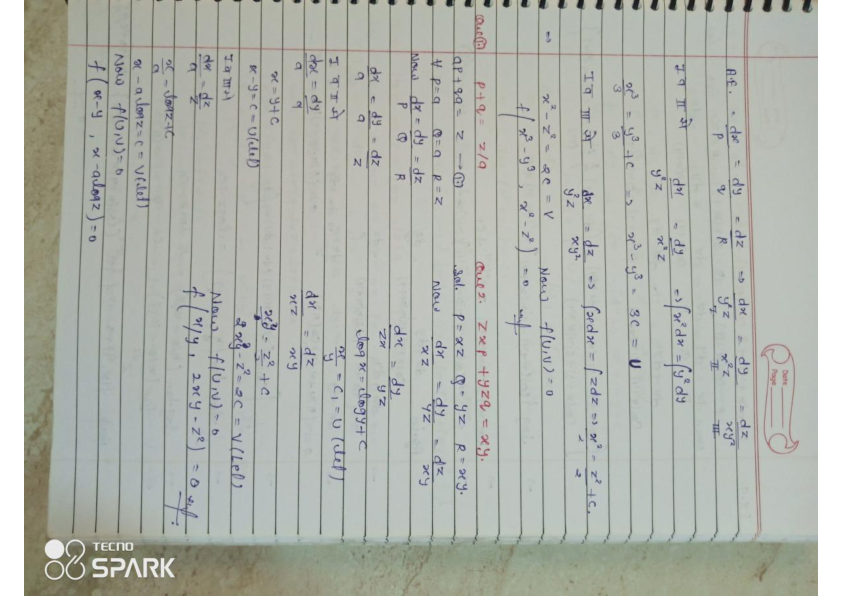 Date
Page
A.E. = dx/P = dy/q = dz/R ⇒ dx/y²z = dy/x²z = dz/xy²
I II III
I व II से dx/y²z = dy/x²z ⇒ ∫x²dx = ∫y²dy
x³/3 = y³/3 + C ⇒ x³ - y³ = 3C = U
I व III से dx/y²z = dz/xy² ⇒ ∫xdx = ∫zdz ⇒ x²/2 = z²/2 + C.
x² - z² = 2C = V Now f(U,V) = 0
⇒ f(x³ - y³, x² - z²) = 0
Ques① p + q = z/a
ap + aq = z → ①
P = a Q = a R = z
Now dx/P = dy/Q = dz/R
dx/a = dy/a = dz/z
I व II से
dx/a = dy/a
x = y + C
x - y = C = U (let)
I व III से
dx/a = dz/z
x/a = logz + C
x - a logz = C = V (let)
Now f(U,V) = 0
f(x - y, x - a logz) = 0
Ques. zxp + yzq = xy.
Sol. P = xz Q = yz R = xy.
Now dx/xz = dy/yz = dz/xy
dx/zx = dy/yz
log x = log y + C
x/y = C₁ = U (let)
dx/xz = dz/xy
xy = z²/2 + C
2xy - z² = 2C = V (let)
Now f(U,V) = 0
f(x/y, 2xy - z²) = 0
TECNO
SPARK